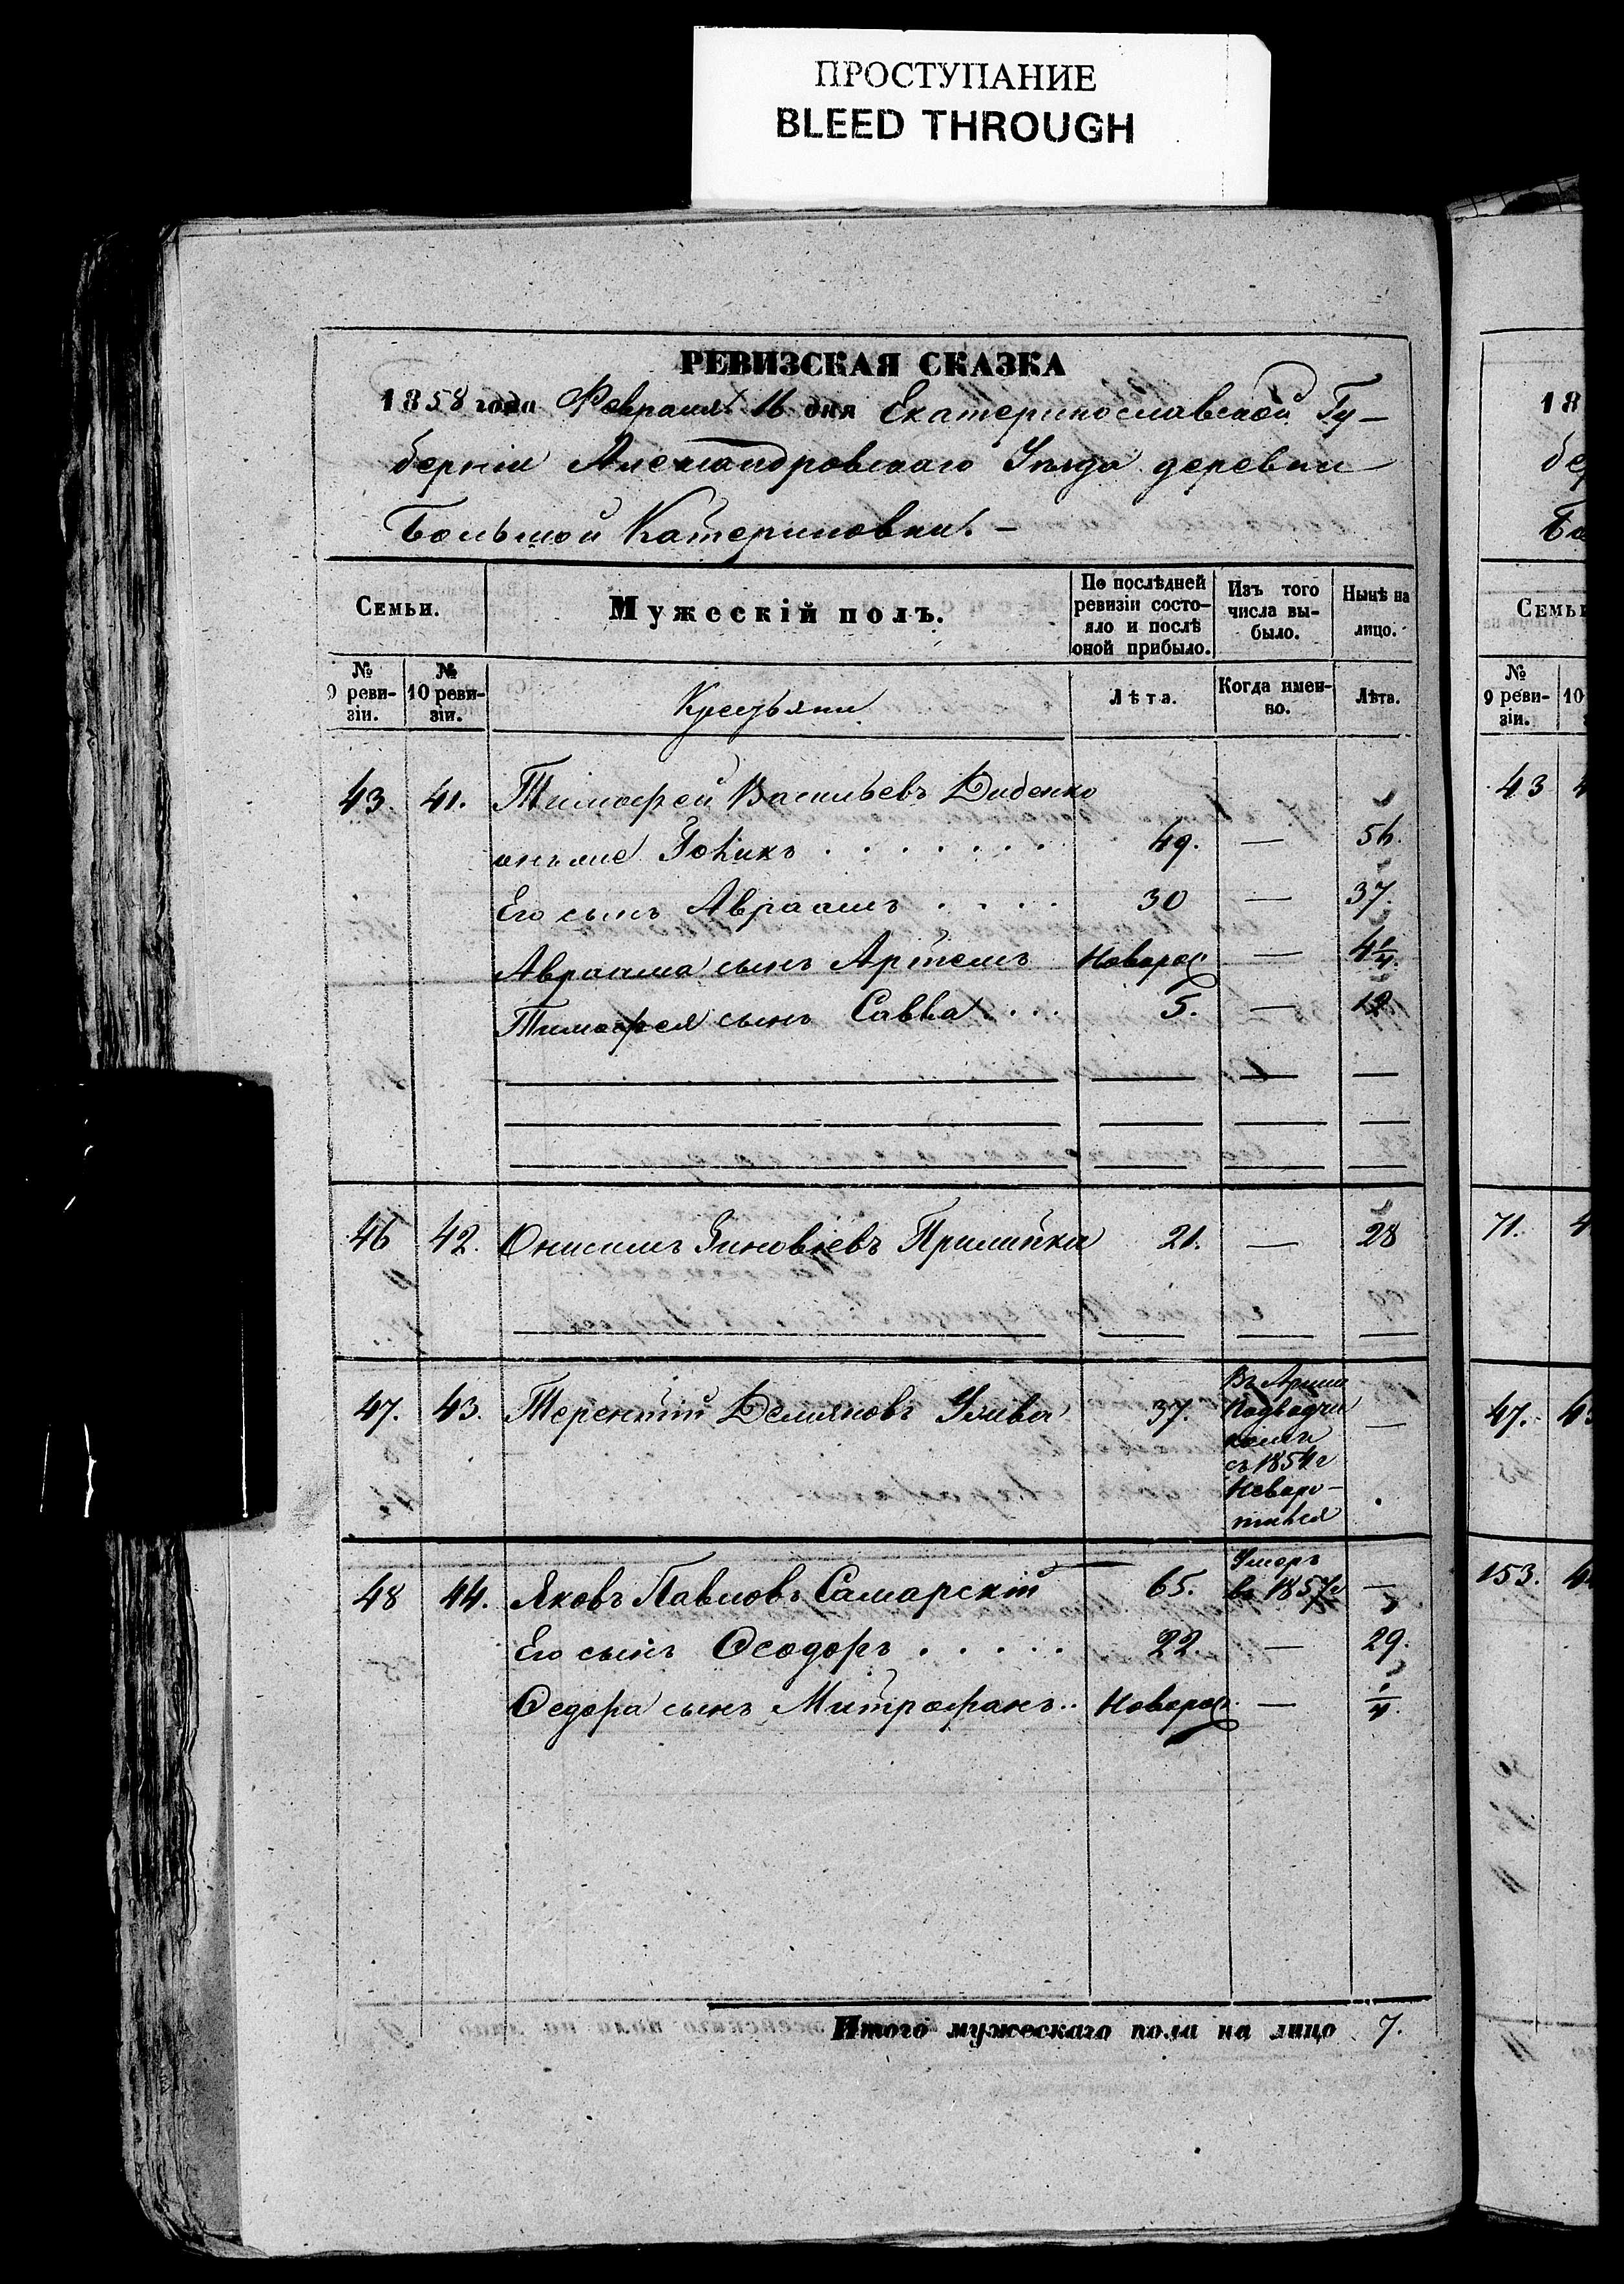 ПРОСТУПАНИЕ
BLEED THROUGH
РЕВИЗСКАЯ СКАЗКА
1858 года Февраля 16 дня Екатеринославской Гу-
берніи Александровскаго Уѣзда деревни
Большой Катериновки. -
Семьи.
Мужескій полъ.
По послѣдней
ревизіи состо-
яло и послѣ
оной прибыло.
Изъ того
числа вы-
было.
Нынѣ на
лицо.
№
9 реви-
зіи.
№
10 реви-
зіи.
Крестьяни
Лѣта.
Когда имен-
но.
Лѣта.
43. 41. Тимофей Васильевъ Дибенко
онъ же 49. — 56.
Его сынъ Авраамъ . . . . 30 — 37.
Авраама сынъ Артемъ Новород — 4 1/4.
Тимофея сынъ Савва . . . 5. — 12
46 42. Онисимъ Зиновіевъ Прилипка 21. — 28
47. 43. Терентій Демяновъ 37. —
Въ Арміи
Подводчи
комъ
съ 1854 г
Неворо-
тился
48 44. Яковъ Павловъ Самарскій 65. —
Умеръ
въ 1857 г
Его сынъ Ѳеодоръ . . . . . 22. — 29.
Ѳедора сынъ Митрофанъ . . Новород. — 1/4.
Итого мужескаго пола на лицо 7.
18
бер
Бо
Семьи
№
9 реви-
зіи.
10
43 4
71. 4
47. 43
153. 44